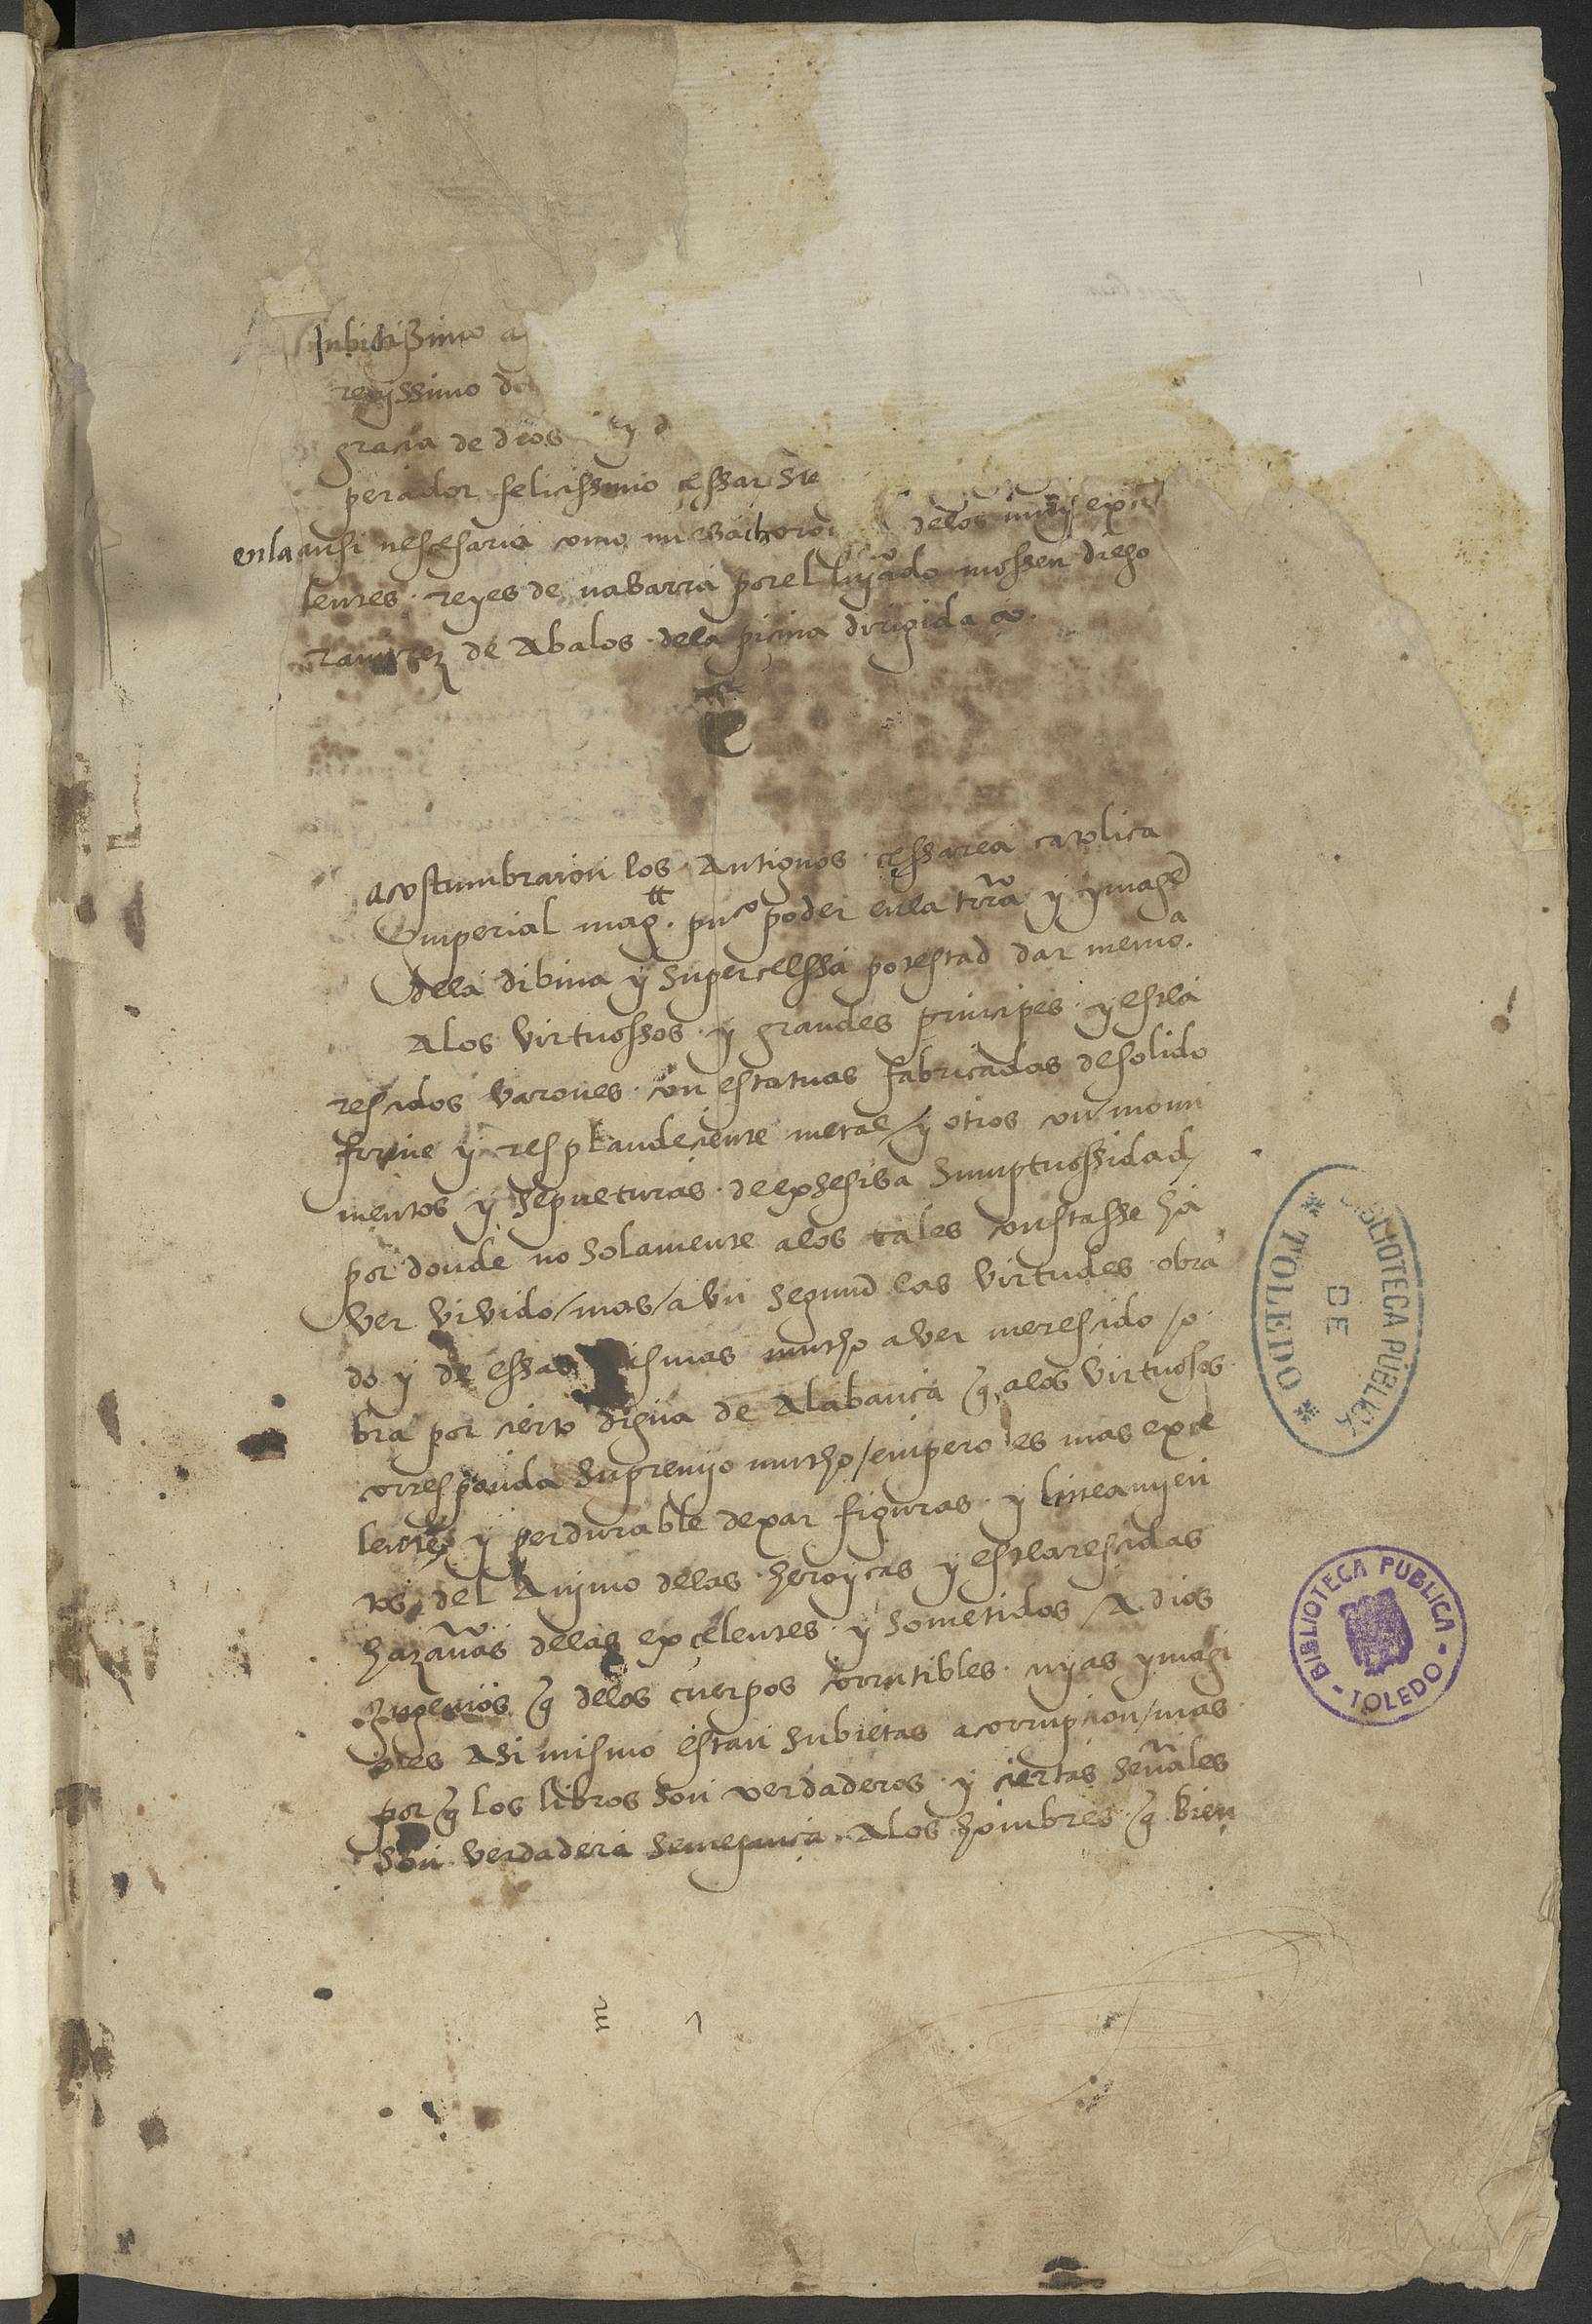 Inbictissimo a
gracia de dios y d
perador felicissimo cessar sie
enla ansi nescesaria como nueba choron delos muy exce
lentes · reyes de nabarra por el liçẽcdo mossen diego
ramyrez de Abalos · dela piçina dirigida a.
acostumbraron los · Antiguos · cessarea catolica
ymperial magtt. puco poder enla trra y ymagẽ
dela dibina y supercelssa potestad dar memoa.
Alos virtuossos · y grandes principes · y escla
rescidos varones · con estatuas fabricadas de solido
firme y resplandeciente metal / y otros con moni
mentos y sepulturas · de exsesiba sumptuossidad /
por donde no solamente alos tales constasse ha
ver vivido / mas / avn segund las virtudes · obra
do y de essas mismas mucho aver merescido / o·
bra por cierto digna de Alabança q̃ alos virtuosos
corresponda su premyo mucho / empero les mas exce
lente y perdurable dexar figuras · y lineamyen
tos del Anymo delas · heroycas y esclarescidas
hazañas delas excelentes · y sometidos / A dios
Ingenios q̃ delos cuerpos corrutibles · cuyas ymagi
nes Asi mismo estan subietas a corrupcion / mas
por q̃ los libros son verdaderos · y ciertas señales
son verdadera semejança · Alos hombres · q̃ bien
BIBLIOTECA PÚBLICA
DE
* TOLEDO *
BIBLIOTECA PUBLICA
- TOLEDO -